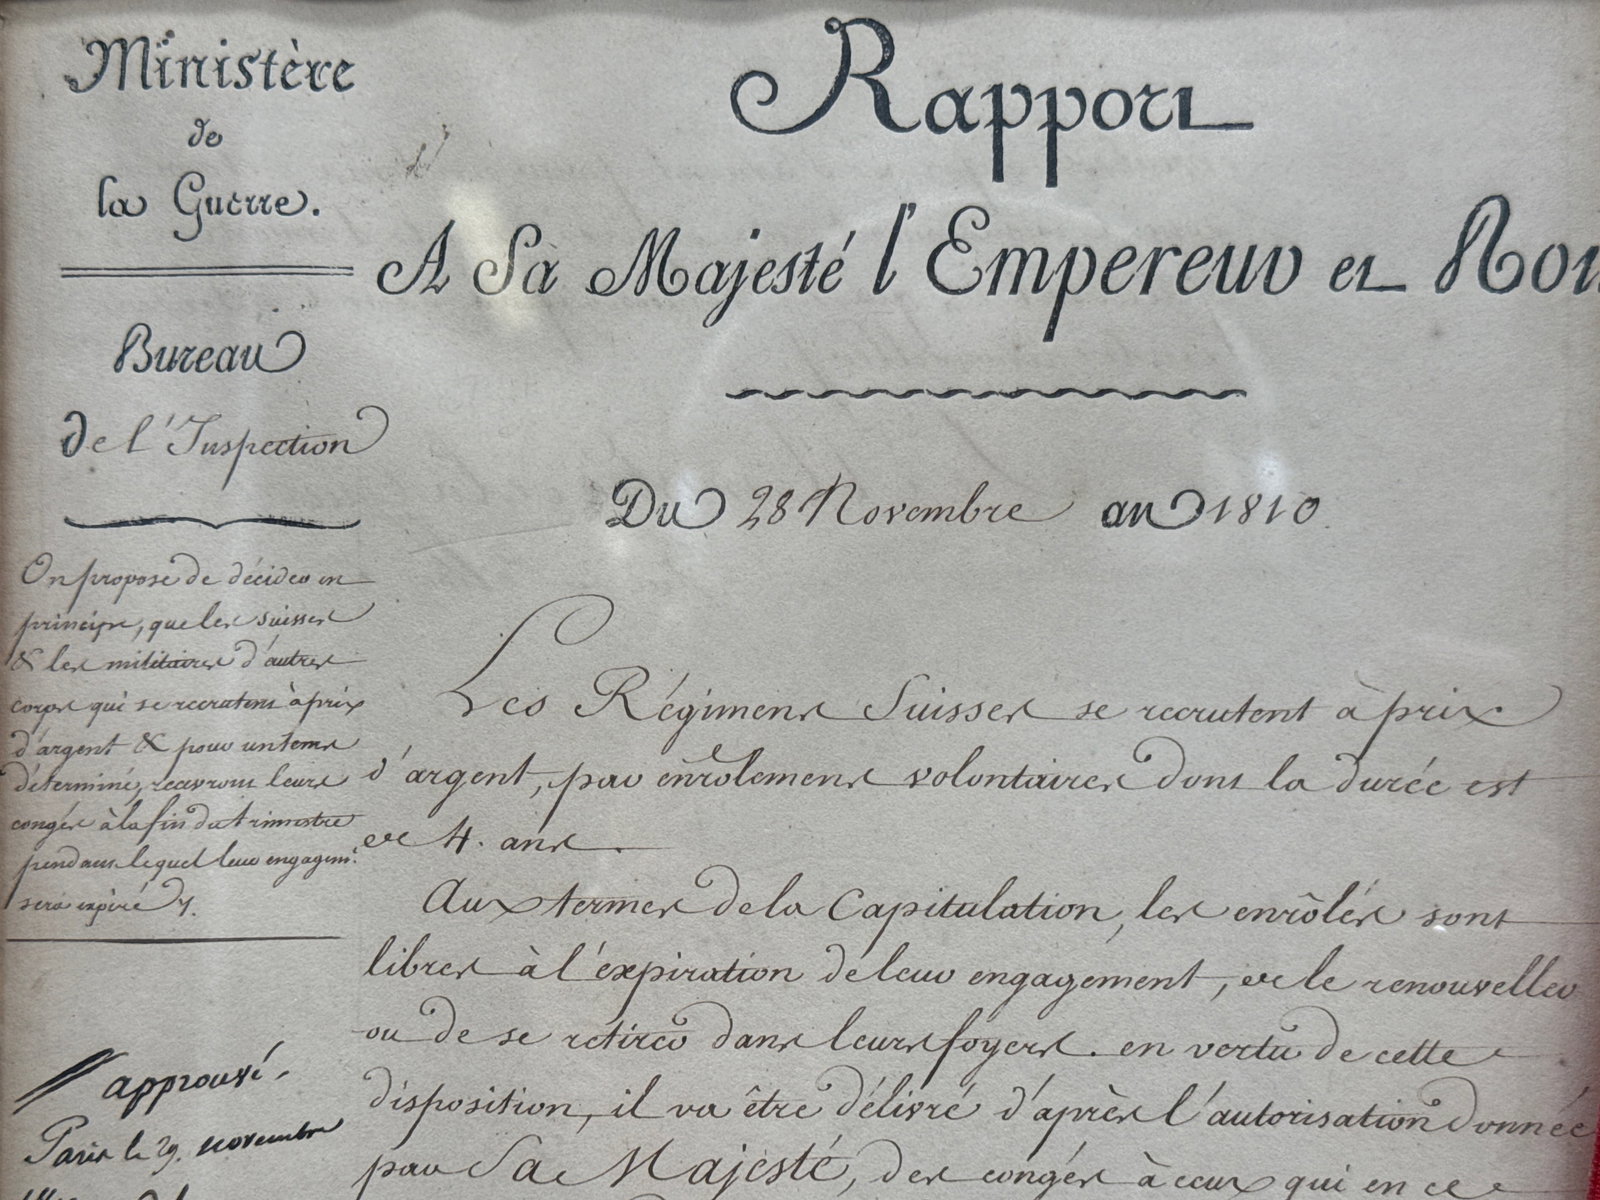 Ministère
de
la Guerre.
Bureau
de l'Inspection
On propose de décider en
principe, que les suisses
& les militaires d'autres
corps qui se recrutent à prix
d'argent & pour un tems
déterminé, recevront leurs
congés à la fin du trimestre
pendant lequel leur engagemt.
sera expiré
approuvé.
Paris le 29. novembre
Rapport
A Sa Majesté l'Empereur et Roi
Du 28 Novembre an 1810.
Les Régimens Suisses se recrutent à prix
d'argent, par enrôlemens volontaires dont la durée est
de 4. ans.
Aux termes de la Capitulation, les enrôlés sont
libres à l'expiration de leur engagement, de le renouveller
ou de se retirer dans leurs foyers. en vertu de cette
disposition, il va être délivré d'après l'autorisation donnée
par Sa Majesté, des congés à ceux qui en